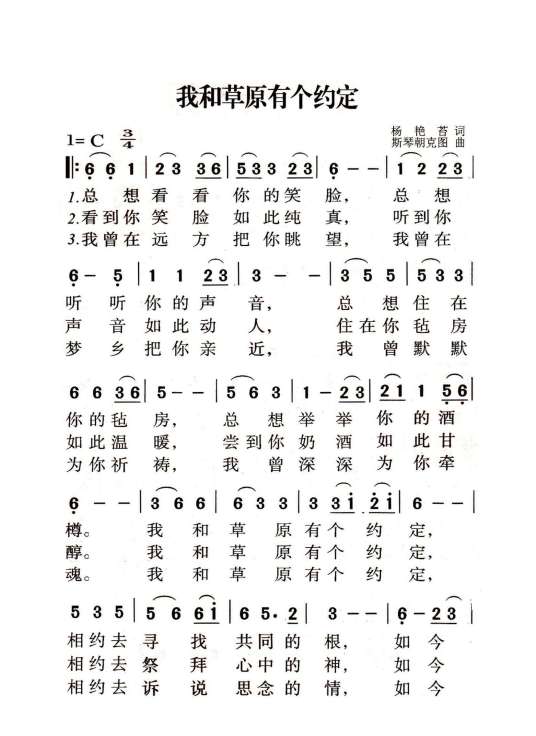 我和草原有个约定
1=C 3/4
杨艳苔 词
斯琴朝克图 曲
‖: 6̣ 6̣ 1 | 23 36 | 533 23 | 6̣ - - | 1 23 |
1.总想看看你的笑脸，总想
2.看到你笑脸如此纯真，听到你
3.我曾在远方把你眺望，我曾在
6̣ - 5̣ | 1 1 23 | 3 - - | 3 5 5 | 5 23 3 |
听听你的声音，总想住在
声音如此动人，住在你毡房
梦乡把你亲近，我曾默默
6 6 36 | 5 - - | 5 6 3 | 1 - 23 | 21 1 5̣6̣ |
你的毡房，总想举举你的酒
如此温暖，尝到你奶酒如此甘
为你祈祷，我曾深深为你牵
6̣ - - | 3 6 6 | 6 3 3 | 3 3i 2i | 6 - - |
樽。我和草原有个约定，
醇。我和草原有个约定，
魂。我和草原有个约定，
5 3 5 | 5 6 6i | 6 5· 2 | 3 - - | 6̣ - 23 |
相约去寻找共同的根，如今
相约去祭拜心中的神，如今
相约去诉说思念的情，如今